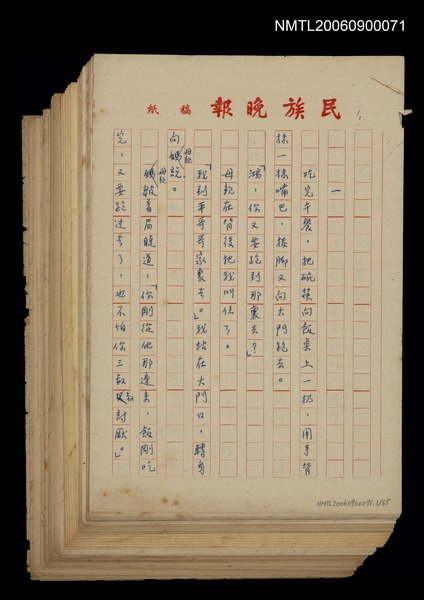 NMTL20060900071
民族晚報 稿紙
1,
一
吃完午餐,把碗筷向飯桌上一扔,用手背
抹一抹嘴巴,挨腳又向大門跑去。
「鴻,你又要跑到那裏去?」
母親在背後把我叫住了。
「我到平哥哥家裏去。」我站在大門口,轉身
向媽母親說。
媽母親皺着眉睨道:「你剛從他那邊來,飯剛吃
完,又要跑过去了,也不怕你三叔叔討厭。」
NMTL20060900071.1/65